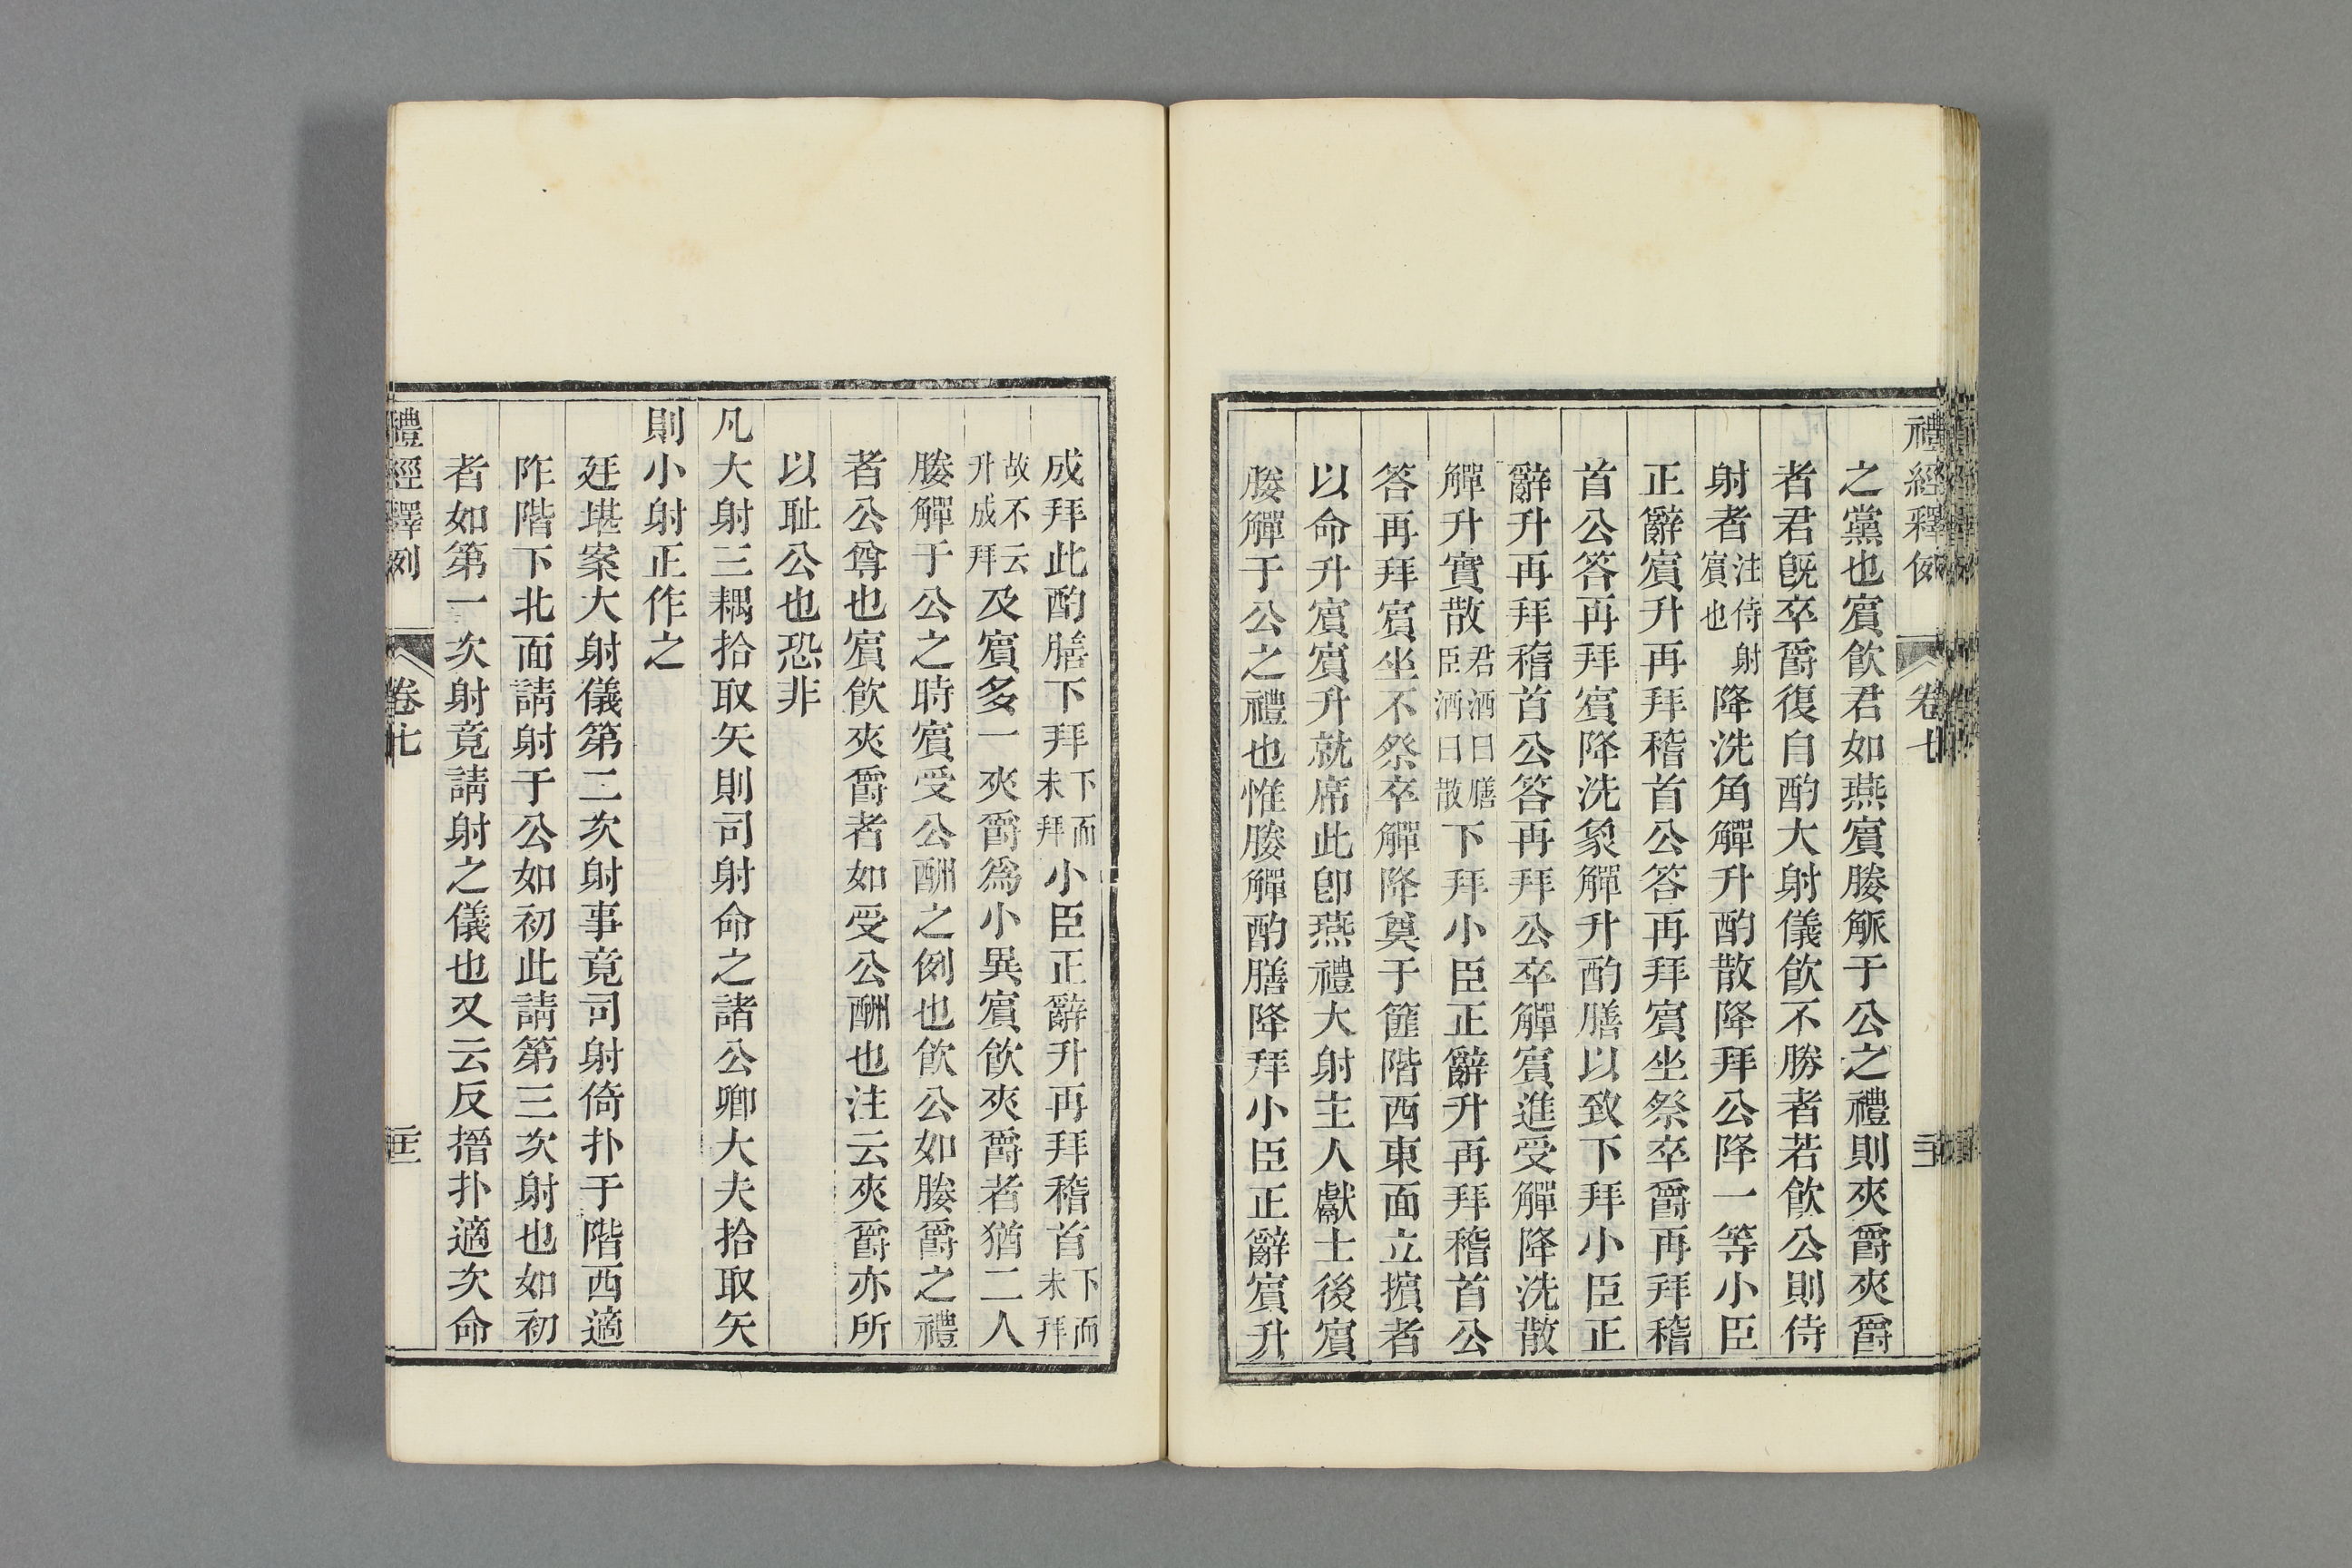 禮經釋例 卷七
之黨也賓飮君如燕賓媵觚于公之禮則夾爵夾爵
者君旣卒爵復自酌大射儀飮不勝者若飮公則侍
射者注侍射賓也降洗角觶升酌散降拜公降一等小臣
正辭賓升再拜稽首公答再拜賓坐祭卒爵再拜稽
首公答再拜賓降洗象觶升酌膳以致下拜小臣正
辭升再拜稽首公答再拜公卒觶賓進受觶降洗散
觶升實散君酒曰膳臣酒曰散下拜小臣正辭升再拜稽首公
答再拜賓坐不祭卒觶降奠于篚階西東面立擯者
以命升賓賓升就席此卽燕禮大射主人獻士後賓
媵觶于公之禮也惟媵觶酌膳降拜小臣正辭賓升
成拜此酌膳下拜下而未拜小臣正辭升再拜稽首下而未拜
故不云升成拜及賓多一夾爵爲小異賓飮夾爵者猶二人
媵觶于公之時賓受公酬之例也飮公如媵爵之禮
者公尊也賓飮夾爵者如受公酬也注云夾爵亦所
以耻公也恐非
凡大射三耦拾取矢則司射命之諸公卿大夫拾取矢
則小射正作之
廷堪案大射儀第二次射事竟司射倚扑于階西適
阼階下北面請射于公如初此請第三次射也如初
者如第一次射竟請射之儀也又云反搢扑適次命
禮經釋例 卷七